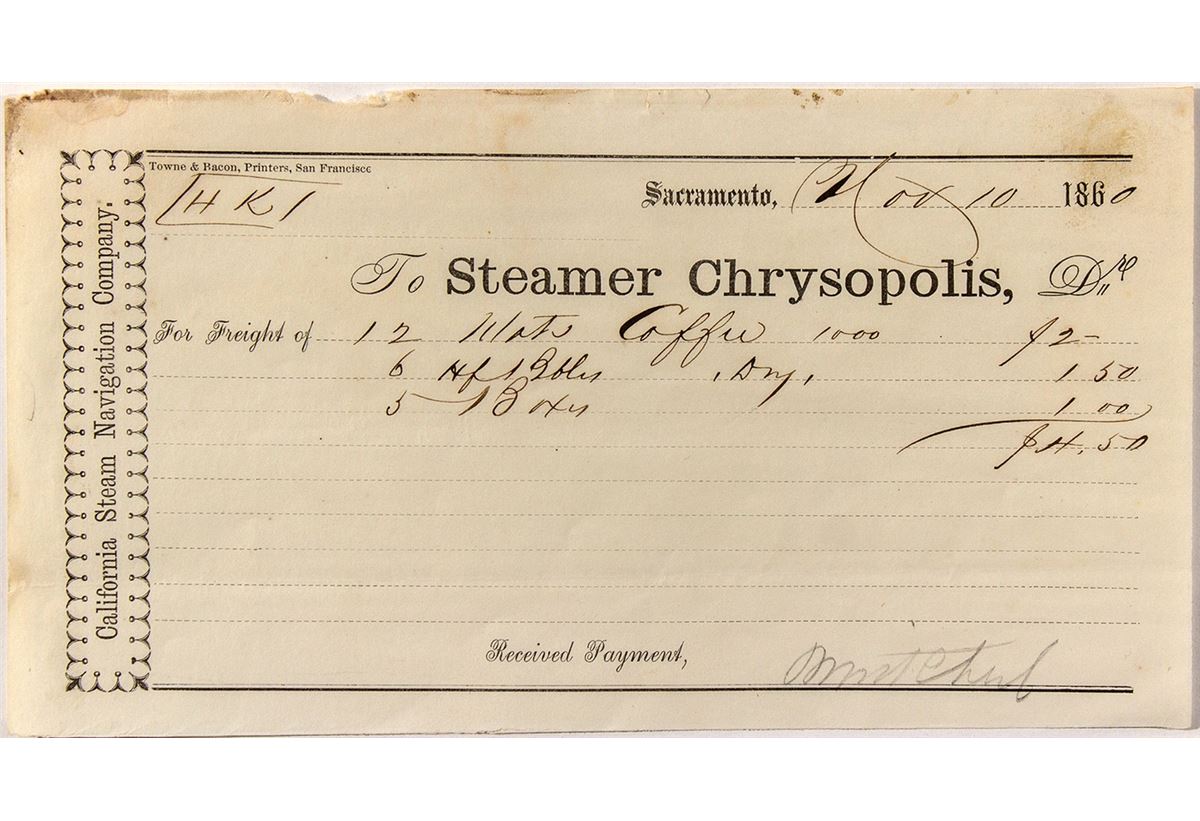 California Steam Navigation Company.
Towne & Bacon, Printers, San Francisco
H K 1
Sacramento, Nov 10 1860
To Steamer Chrysopolis, Dr
For Freight of 12 Mats Coffee 1000 $2-
6 Hf Bbls 1 50
5 Boxes 1 00
$4.50
Received Payment,